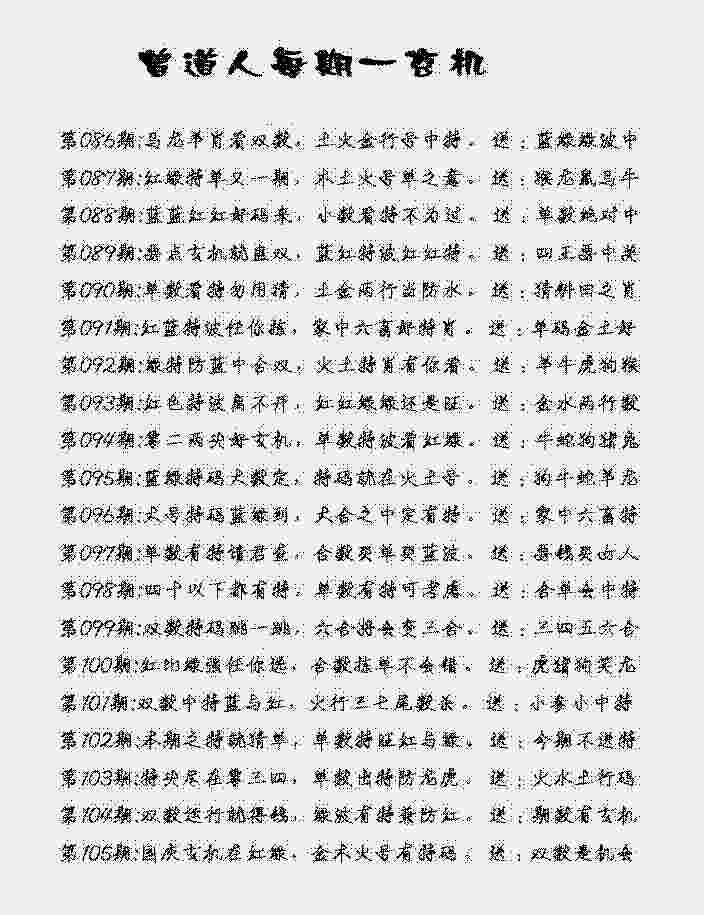 曾道人每期一玄机
第086期:马龙羊肖看双数，土火金行号中特。送：蓝绿绿波中
第087期:红绿特单又一期，木土火号单之喜。送：猴龙鼠马牛
第088期:蓝蓝红红好码来，小数看特不为过。送：单数绝对中
第089期:要点玄机就直双，蓝红特波红红特。送：四王要中奖
第090期:单数看特勿用猜，土金两行当防水。送：猜斜田之肖
第091期:红蓝特波任你拣，家中六畜好特肖。送：单码金土好
第092期:绿特防蓝中合双，火土特肖有你看。送：羊牛虎狗猴
第093期:红色特波离不开，红红绿绿还是旺。送：金水两行数
第094期:零二两头好玄机，单数特波看红绿。送：牛蛇狗猪兔
第095期:蓝绿特码大数定，特码就在火土号。送：狗牛蛇羊龙
第096期:大号特码蓝绿到，大合之中定有特。送：家中六畜特
第097期:单数有特请君查，合数买单买蓝波。送：要钱买 人
第098期:四十以下都有特，单数有特可考虑。送：合单会中特
第099期:双数特码跳一跳，六合将会变三合。送：三四五六合
第100期:红 绿强任你选，合数拣单不会错。送：虎猪狗笑龙
第101期:双数中特蓝与红，火行三七尾数杀。送：小拳小中特
第102期:本期之特就猜单，单数特旺红与绿。送：今期不送特
第103期:特头尽在零三四，单数出特防龙虎。送：火水土行码
第104期:双数逆行就得钱，绿波有特兼防红。送：期数有玄机
第105期:国庆玄机在红绿，金木火号有特码。送：双数是机会